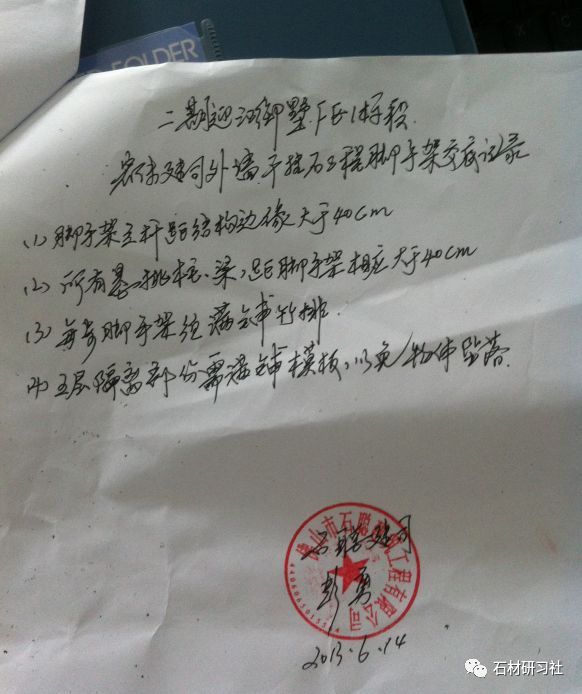 FOLDER
二期迎江御墅FE1标段
外墙干挂石工程脚手架交底记录
(1) 脚手架立杆距结构边缘大于40cm
(2) 所有 挑柱、梁,距脚手架相应大于40cm
(3) 每步脚手架经满铺竹排.
(4) 五层隔离部份需满铺模板,以免物体坠落.
佛山市石 工程有限公司
彭勇
2013.6.14
石材研习社